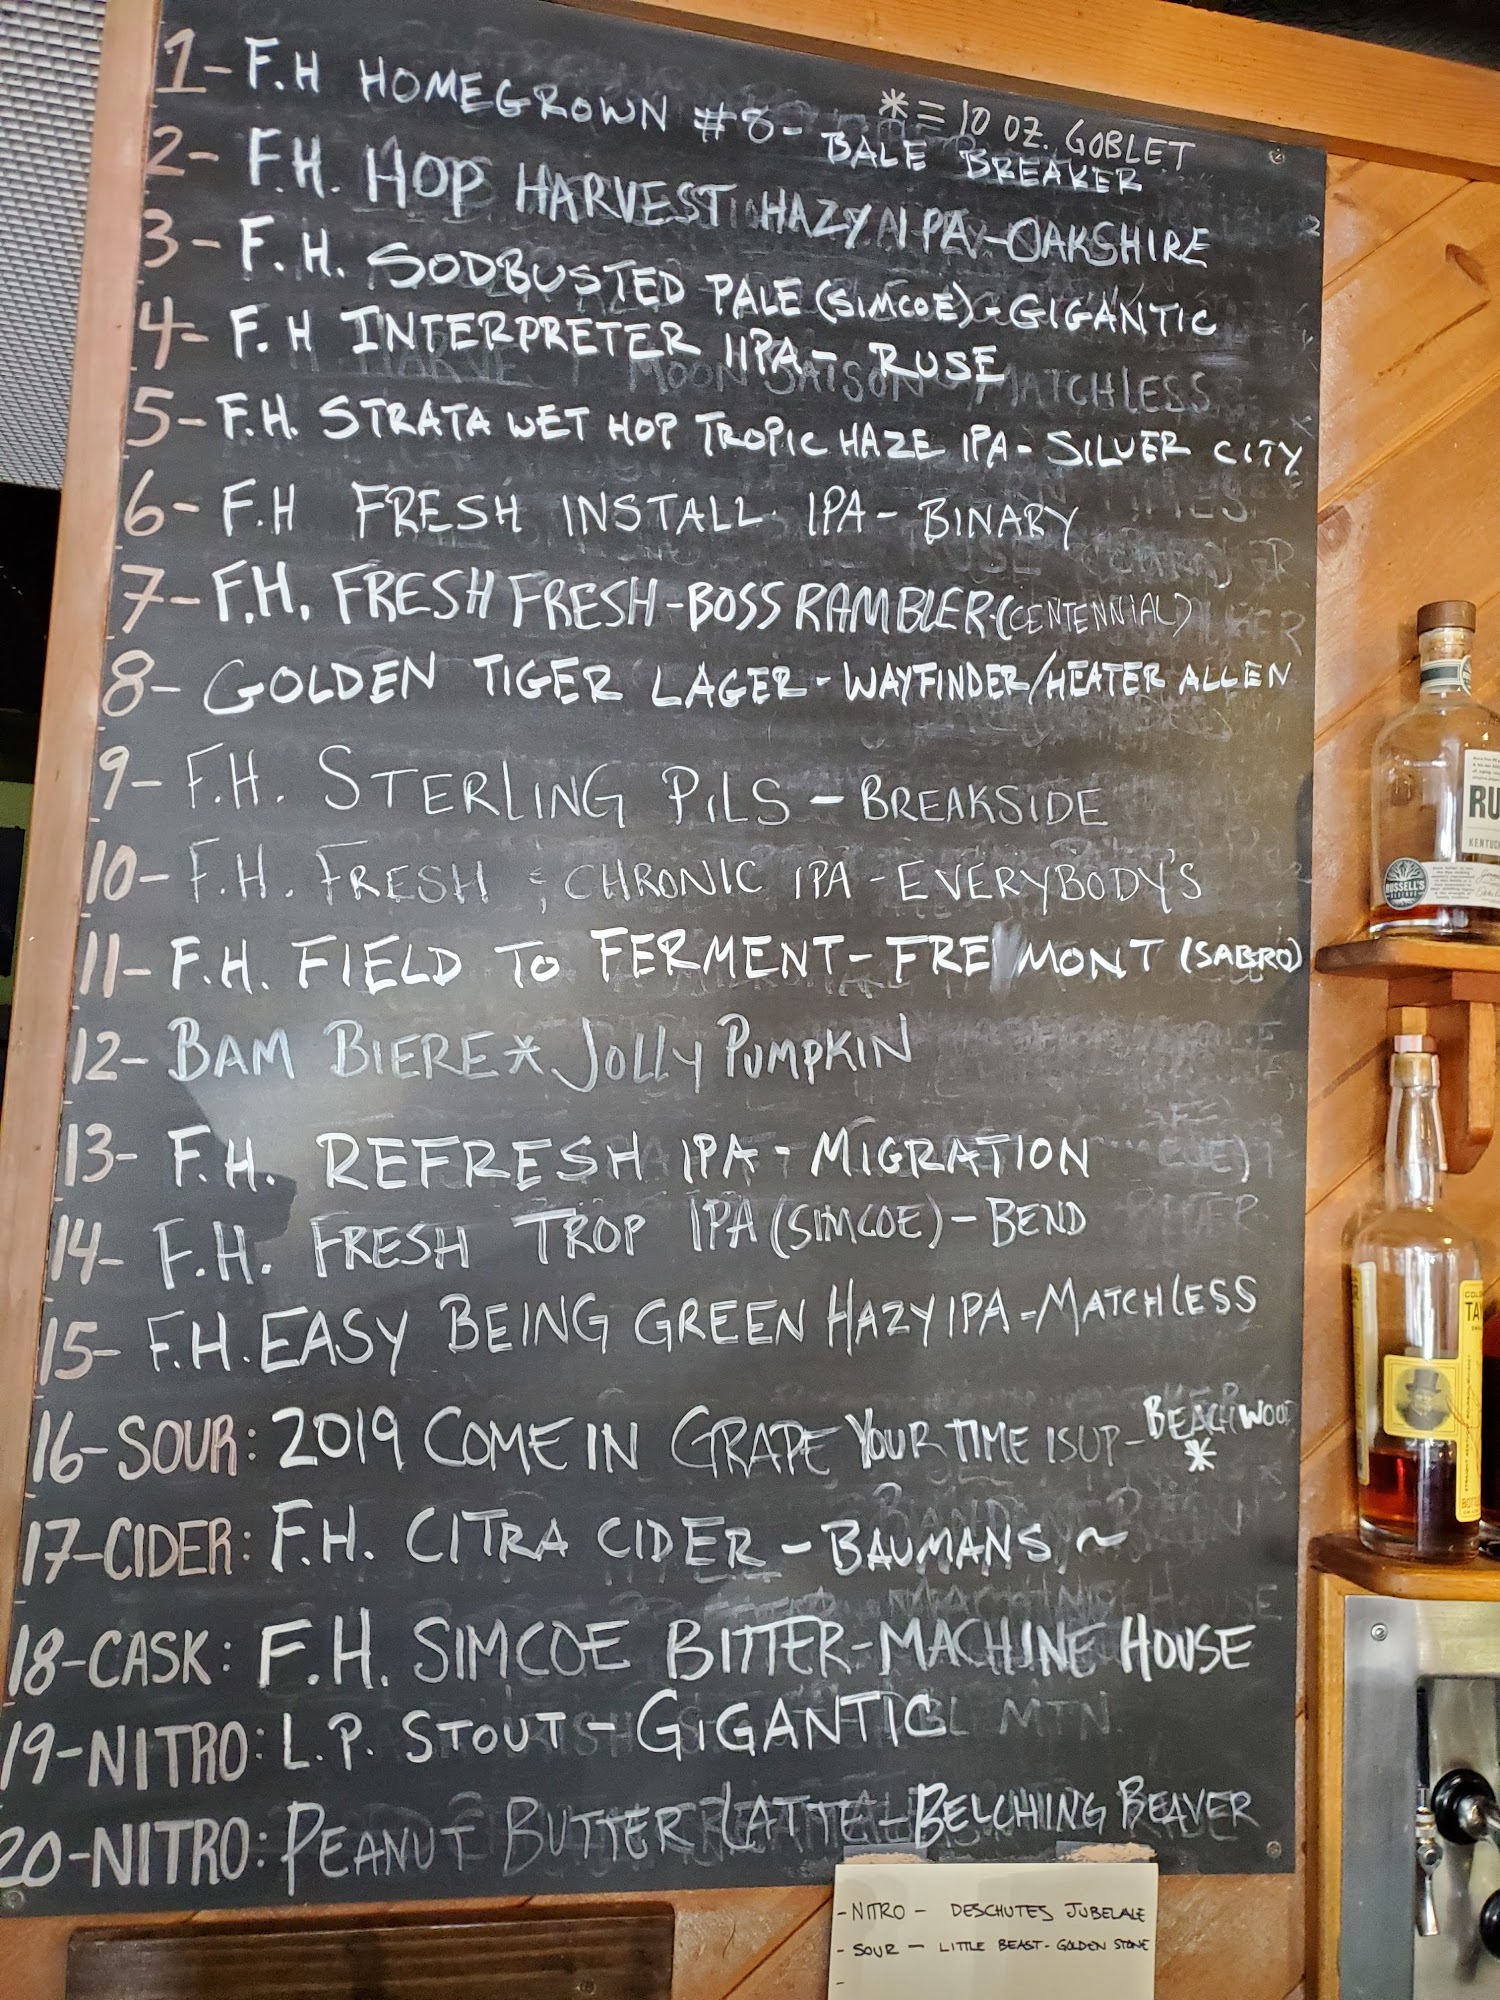 1- F.H HOMEGROWN #8- BALE BREAKER
* = 10 OZ. GOBLET
2- F.H. HOP HARVEST HAZY IPA - OAKSHIRE
3- F.H. SODBUSTED PALE (SIMCOE) - GIGANTIC
4- F.H INTERPRETER IIPA - RUSE
5- F.H. STRATA WET HOP TROPIC HAZE IPA - SILVER CITY
6- F.H FRESH INSTALL IPA - BINARY
7- F.H. FRESH FRESH - BOSS RAMBLER (CENTENNIAL)
8- GOLDEN TIGER LAGER - WAYFINDER/HEATER ALLEN
9- F.H. STERLING PILS - BREAKSIDE
10- F.H. FRESH & CHRONIC IPA - EVERYBODY'S
11- F.H. FIELD TO FERMENT - FRE MONT (SABRO)
12- BAM BIERE * JOLLY PUMPKIN
13- F.H. REFRESH IPA - MIGRATION
14- F.H. FRESH TROP IPA (SIMCOE) - BEND
15- F.H. EASY BEING GREEN HAZY IPA - MATCHLESS
16- SOUR: 2019 COME IN GRAPE YOUR TIME IS UP - BEACHWOOD
*
17- CIDER: F.H. CITRA CIDER - BAUMANS ~
18- CASK: F.H. SIMCOE BITTER - MACHINE HOUSE
19- NITRO: L.P. STOUT - GIGANTIC
20- NITRO: PEANUT BUTTER LATTE - BELCHING BEAVER
- NITRO - DESCHUTES JUBELALE
- SOUR - LITTLE BEAST - GOLDEN STONE
-
RU
KENTUC
RUSSELL'S
RESERVE
COLON
TAY